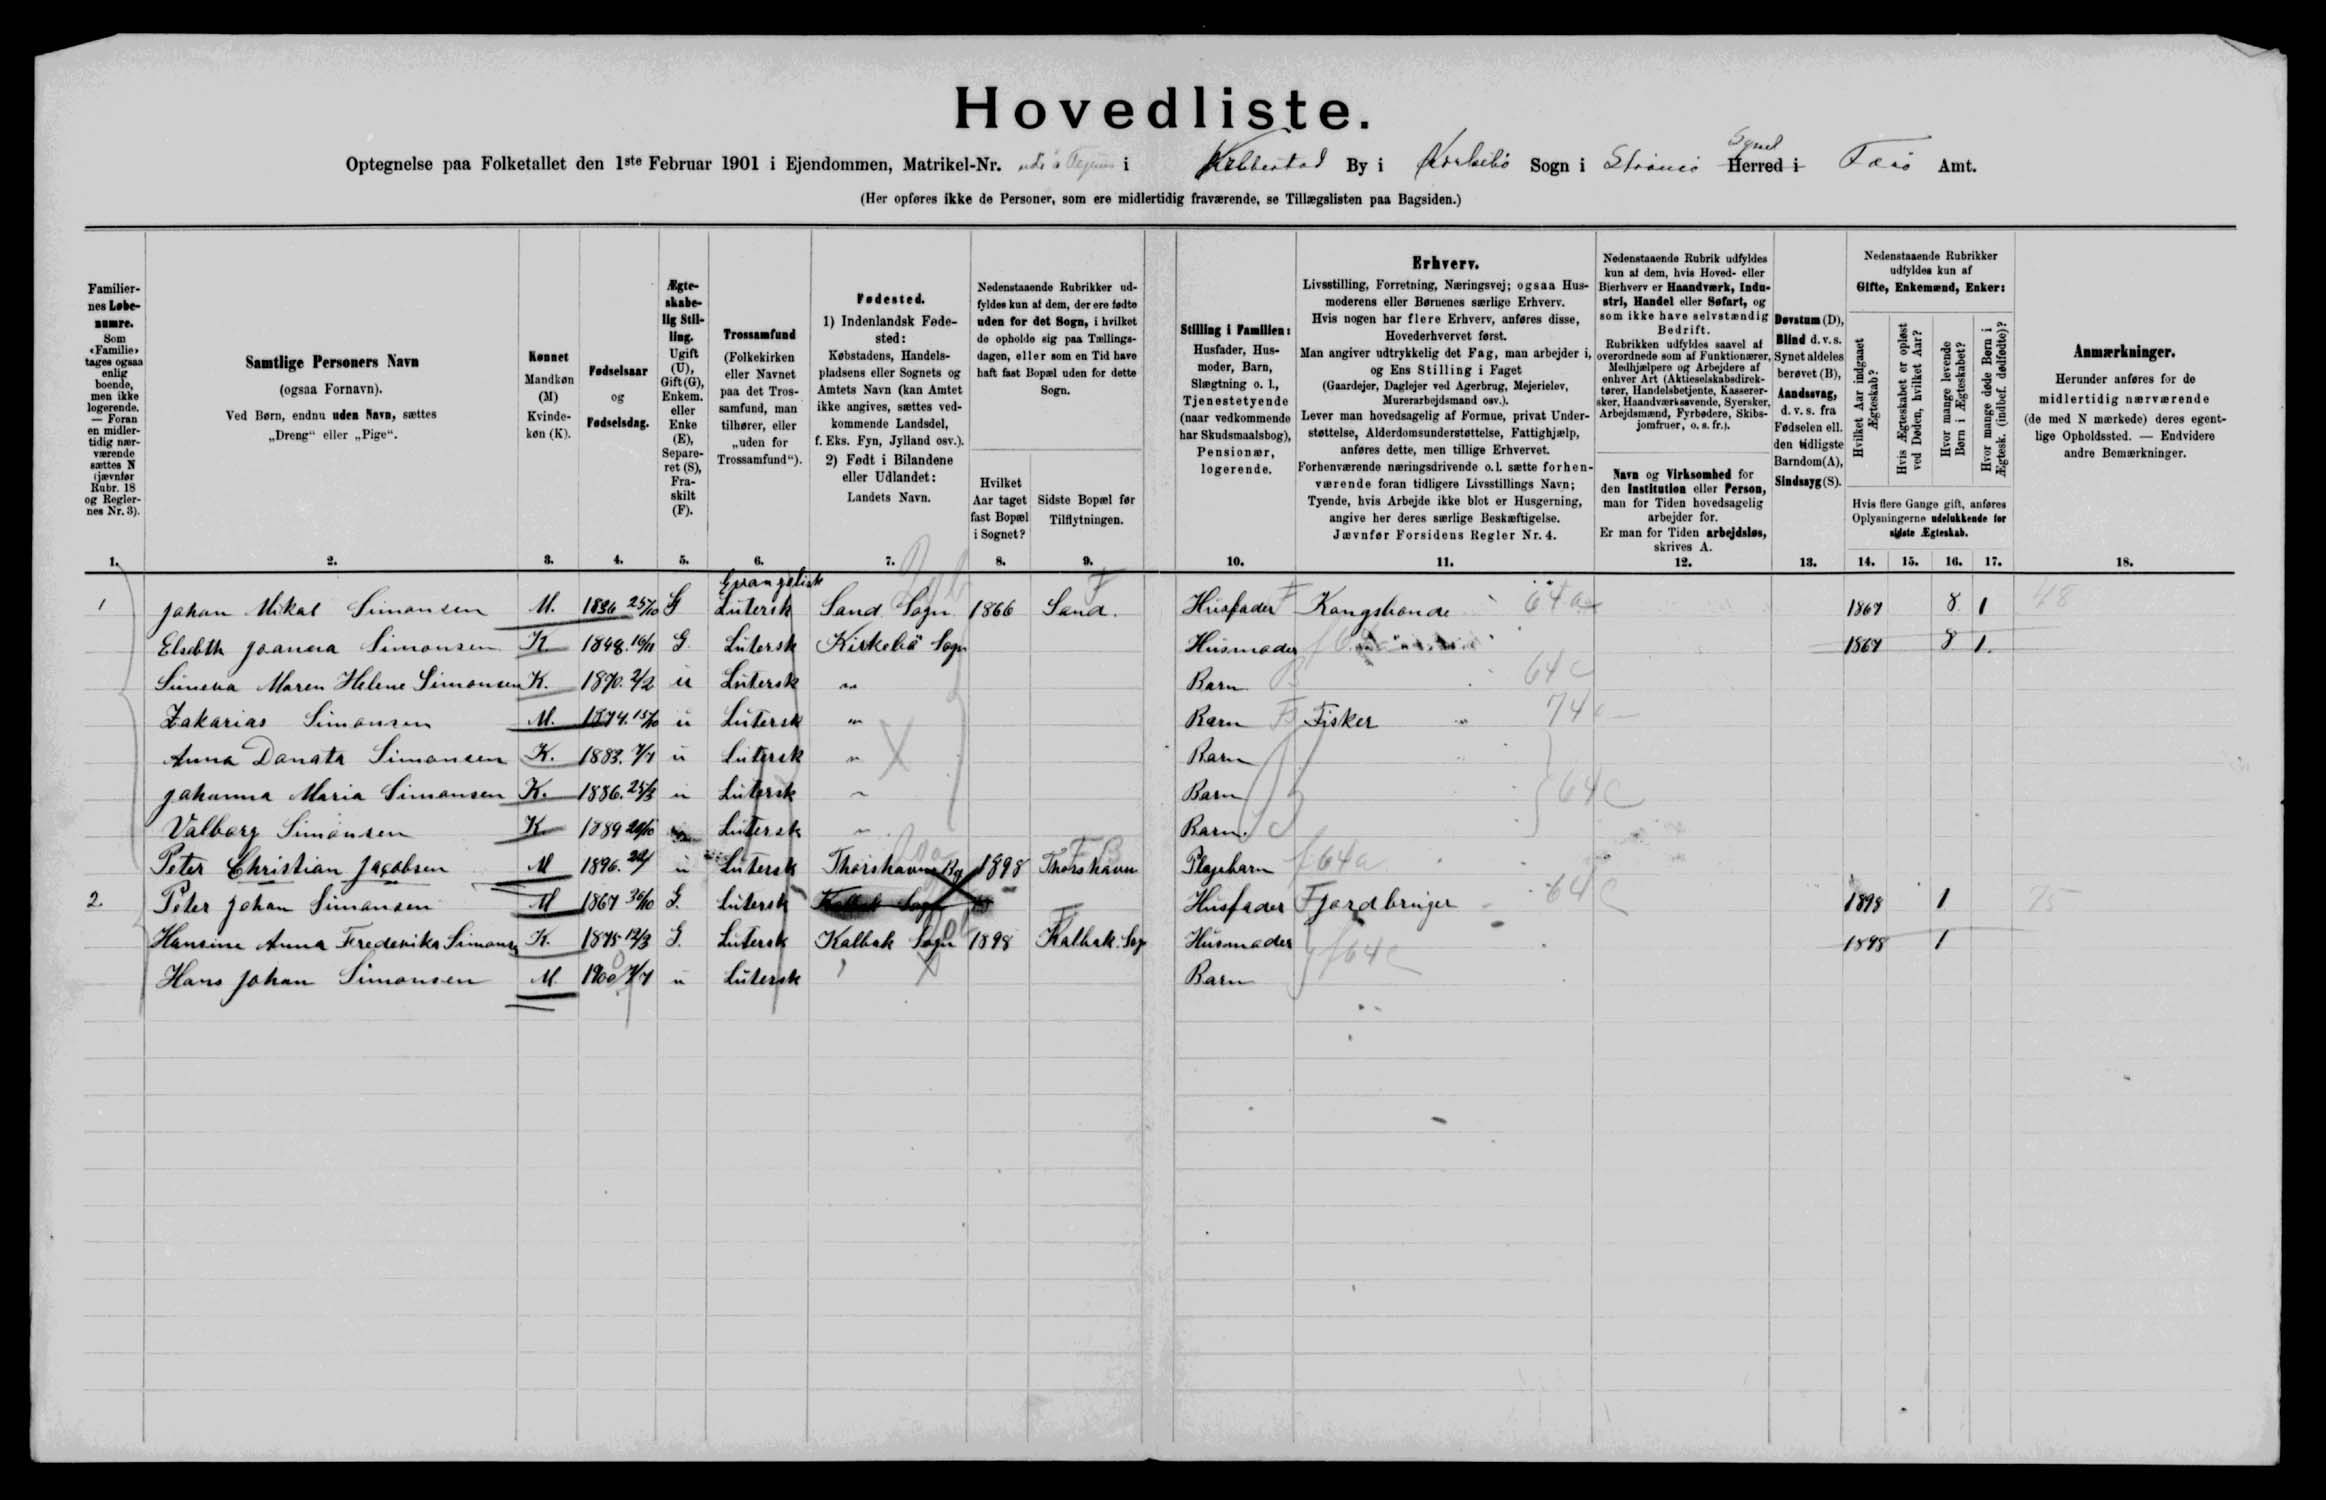 Hovedliste.
Optegnelse paa Folketallet den 1ste Februar 1901 i Ejendommen, Matrikel-Nr. i By i Sogn i Strömö Syssel Herred i Færö Amt.
(Her opføres ikke de Personer, som ere midlertidig fraværende, se Tillægslisten paa Bagsiden.)
Familiernes Løbenumre.
Som «Familie» tages ogsaa enlig boende, men ikke logerende. — Foran en midlertidig nærværende sættes N (jævnfør Rubr. 18 og Reglernes Nr. 3).
Samtlige Personers Navn
(ogsaa Fornavn).
Ved Børn, endnu uden Navn, sættes
„Dreng" eller „Pige".
Kønnet
Mandkøn (M)
Kvindekøn (K).
Fødselsaar
og
Fødselsdag.
Ægteskabelig Stilling.
Ugift (U), Gift (G), Enkem. eller Enke (E), Separeret (S), Fraskilt (F).
Trossamfund
(Folkekirken eller Navnet paa det Trossamfund, man tilhører, eller „uden for Trossamfund").
Fødested.
1) Indenlandsk Fødested:
Købstadens, Handelspladsens eller Sognets og Amtets Navn (kan Amtet ikke angives, sættes vedkommende Landsdel, f. Eks. Fyn, Jylland osv.).
2) Født i Bilandene eller Udlandet:
Landets Navn.
Nedenstaaende Rubrikker udfyldes kun af dem, der ere fødte uden for det Sogn, i hvilket de opholde sig paa Tællingsdagen, eller som en Tid have haft fast Bopæl uden for dette Sogn.
Hvilket Aar taget fast Bopæl i Sognet?
Sidste Bopæl før Tilflytningen.
Stilling i Familien:
Husfader, Husmoder, Barn, Slægtning o. l., Tjenestetyende (naar vedkommende har Skudsmaalsbog), Pensionær, logerende.
Erhverv.
Livsstilling, Forretning, Næringsvej; ogsaa Husmoderens eller Børnenes særlige Erhverv.
Hvis nogen har flere Erhverv, anføres disse, Hovederhvervet først.
Man angiver udtrykkelig det Fag, man arbejder i, og Ens Stilling i Faget
(Gaardejer, Daglejer ved Agerbrug, Mejerielev, Murerarbejdsmand osv.).
Lever man hovedsagelig af Formue, privat Understøttelse, Alderdomsunderstøttelse, Fattighjælp, anføres dette, men tillige Erhvervet.
Forhenværende næringsdrivende o. l. sætte forhenværende foran tidligere Livsstillings Navn;
Tyende, hvis Arbejde ikke blot er Husgerning, angive her deres særlige Beskæftigelse.
Jævnfør Forsidens Regler Nr. 4.
Nedenstaaende Rubrik udfyldes kun af dem, hvis Hoved- eller Bierhverv er Haandværk, Industri, Handel eller Søfart, og som ikke have selvstændig Bedrift.
Rubrikken udfyldes saavel af overordnede som af Funktionærer, Medhjælpere og Arbejdere af enhver Art (Aktieselskabsdirektører, Handelsbetjente, Kasserersker, Haandværkssvende, Syersker, Arbejdsmænd, Fyrbødere, Skibsjomfruer, o. s. fr.).
Navn og Virksomhed for den Institution eller Person, man for Tiden hovedsagelig arbejder for.
Er man for Tiden arbejdsløs, skrives A.
Døvstum (D), Blind d. v. s. Synet aldeles berøvet (B), Aandssvag, d. v. s. fra Fødselen ell. den tidligste Barndom (A), Sindssyg (S).
Nedenstaaende Rubrikker udfyldes kun af
Gifte, Enkemænd, Enker:
Hvilket Aar indgaaet Ægteskab?
Hvis Ægteskabet er opløst ved Døden, hvilket Aar?
Hvor mange levende Børn i Ægteskabet?
Hvor mange døde Børn i Ægtesk. (indbef. dødfødte)?
Hvis flere Gange gift, anføres Oplysningerne udelukkende for sidste Ægteskab.
Anmærkninger.
Herunder anføres for de midlertidig nærværende (de med N mærkede) deres egentlige Opholdssted. — Endvidere andre Bemærkninger.
1. 2. 3. 4. 5. 6. 7. 8. 9. 10. 11. 12. 13. 14. 15. 16. 17. 18.
Evangelisk
1 Johan Mikal Simonsen M. 1836 25/10 G Lutersk Sand Sogn 1866 Sand. Husfader Kongsbonde 64a 1867 8 1 48
Elsebth Joanna Simonsen K. 1848. G. Lutersk Kirkebö Sogn Husmoder 1867 8 1.
Maren Helene Simonsen K. 1870. 2/2 u Lutersk " Barn 64c
Zakarias Simonsen M. 1874. 15/10 u Lutersk " Barn Fisker 74
Anna Donata Simonsen K. 1883. u Lutersk " Barn
Johanna Maria Simonsen K. 1886. 25/3 u Lutersk " Barn 64c
Valborg Simonsen K 1889 Lutersk " Barn.
Peter Christian Jacobsen M 1896. u Lutersk Thorshavns By 1898 Thorshavn Plejebarn f64a
2. Peter Johan Simonsen M 1867 G. Lutersk Husfader Fjordbruger 64c 1898 1 75
Hansine Anna Frederika Simons K. 1875 12/3 G. Lutersk Kalbak Sogn 1898 Kalbak Sogn Husmoder f64c 1898 1
Hans Johan Simonsen M. 1900 u Lutersk Barn